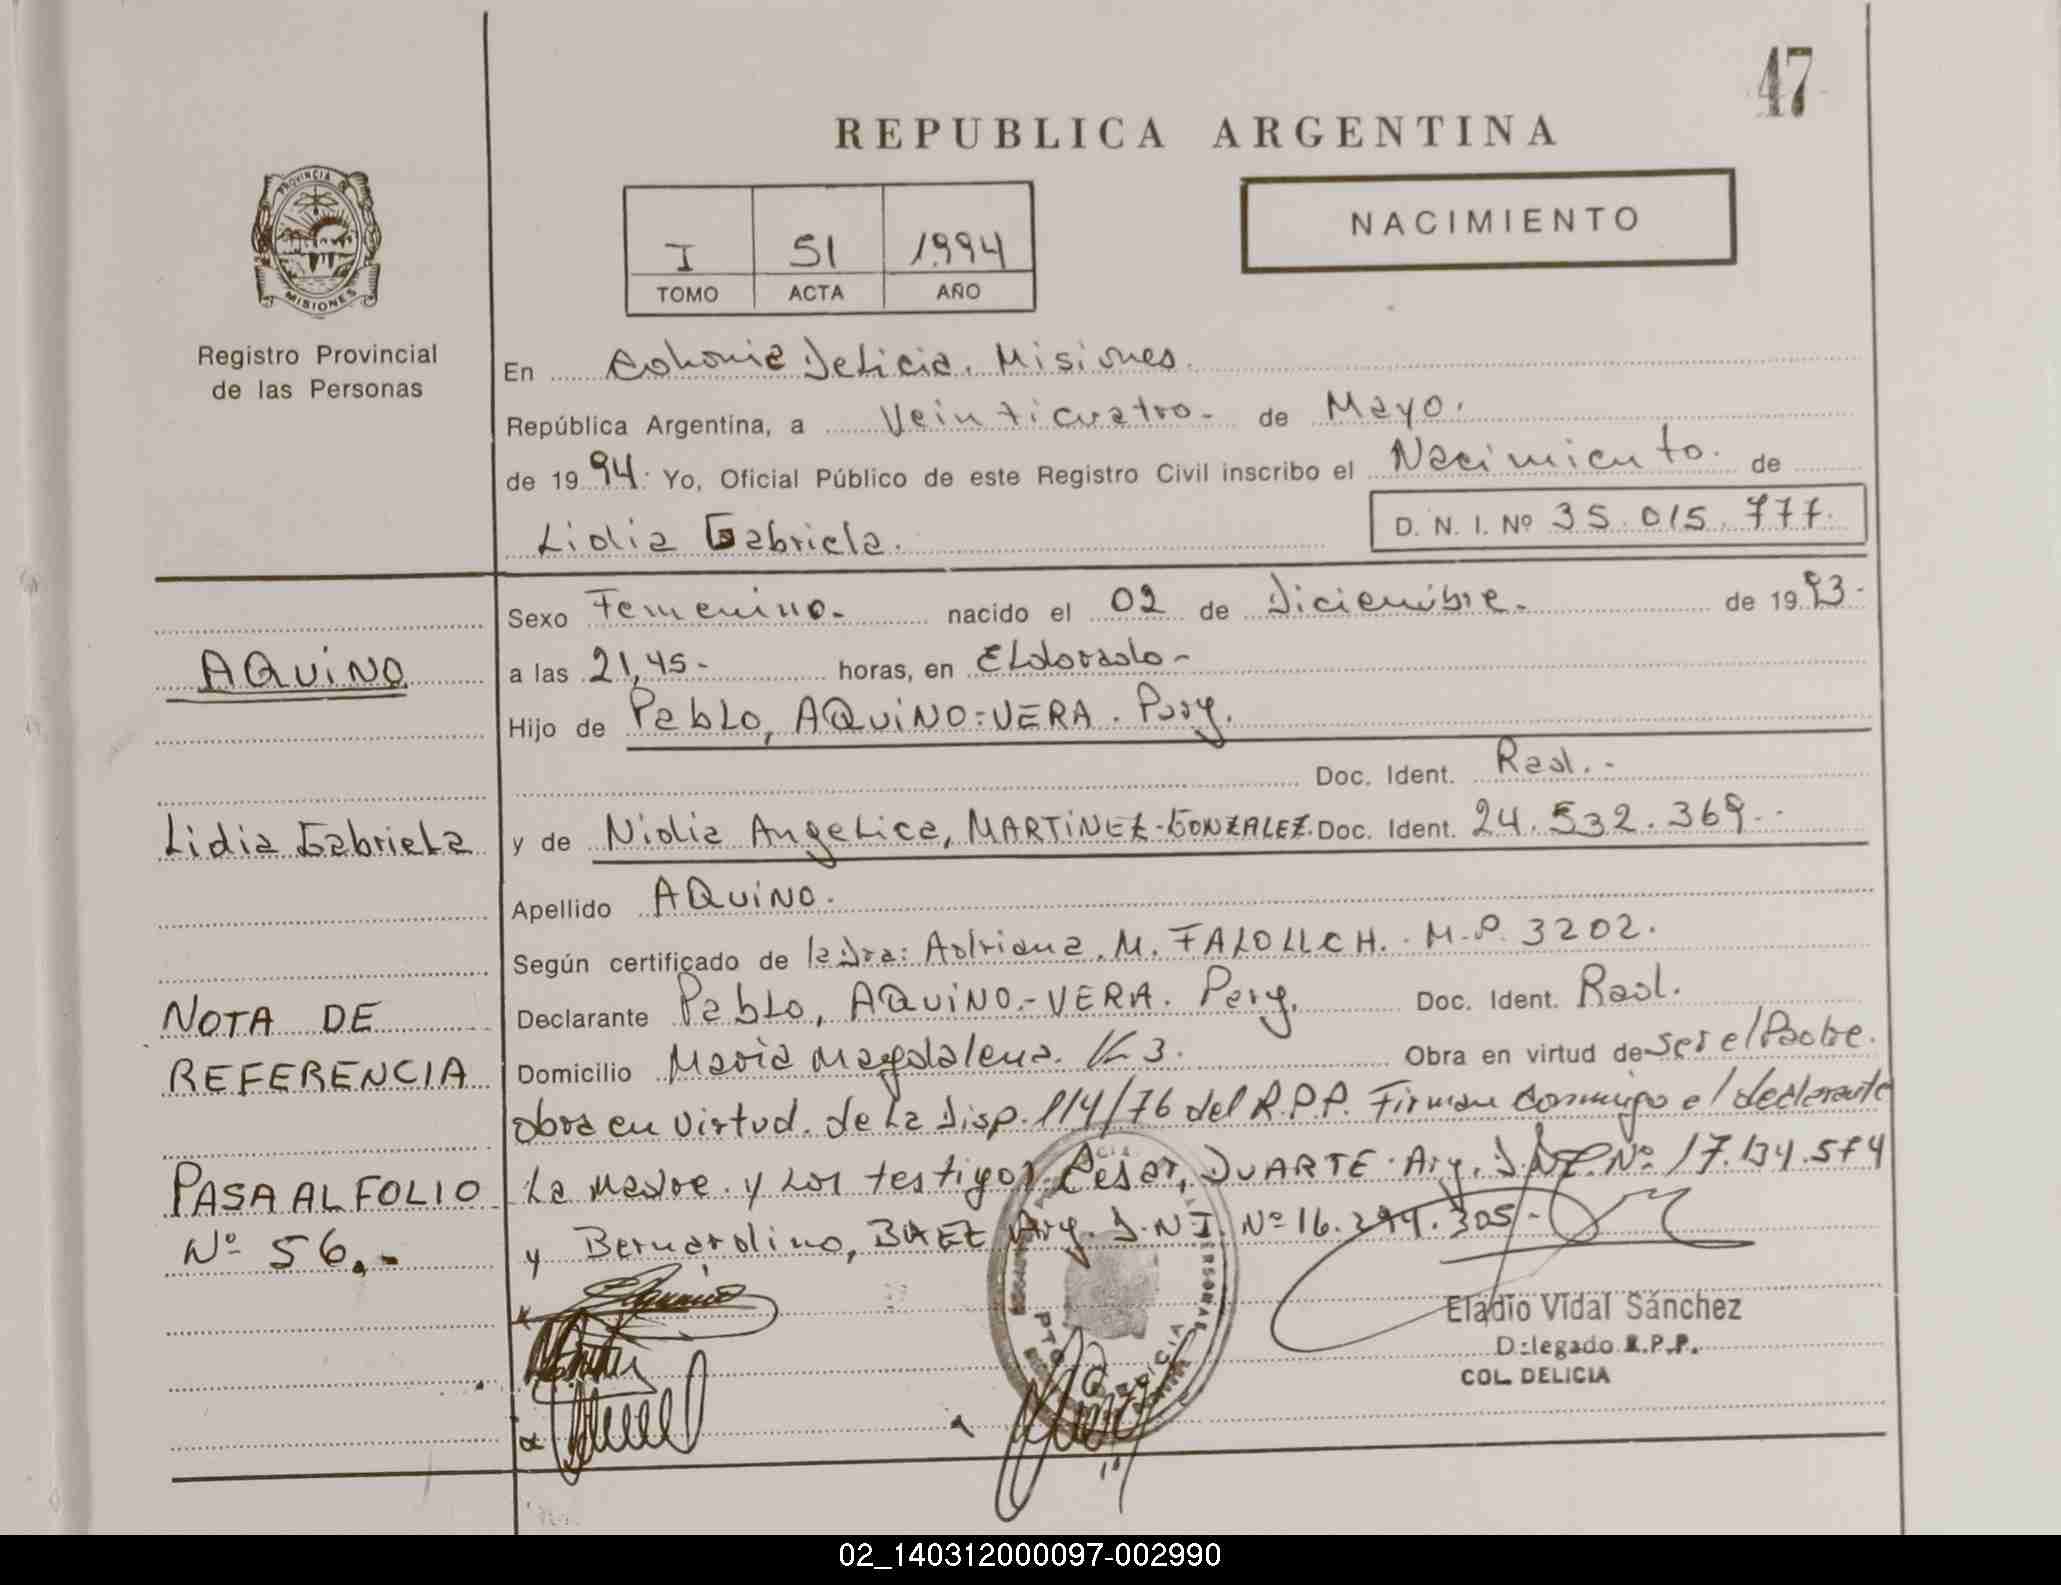 47
REPUBLICA ARGENTINA
PROVINCIA DE
MISIONES
I 51 1994
TOMO ACTA AÑO
NACIMIENTO
Registro Provincial
de las Personas
En Colonia Delicia. Misiones.
República Argentina, a Veinticuatro- de Mayo.
de 1994. Yo, Oficial Público de este Registro Civil inscribo el Nacimiento. de
Lidia Gabriela.
D. N. I. Nº 35.015.777.
Sexo Femenino.- nacido el 02 de Diciembre. de 1993-
AQUINO
a las 21,45- horas, en Eldorado-
Hijo de Pablo, AQUINO=VERA. Pary.
Doc. Ident. Rad.-
Lidia Gabriela
y de Nidia Angelica, MARTINEZ-GONZALEZ. Doc. Ident. 24.532.369.-
Apellido AQUINO.
Según certificado de la Dra: Adriana. M. M.P. 3202.
NOTA DE
Declarante Pablo, AQUINO.-VERA. Pary. Doc. Ident. Rad.
REFERENCIA
Domicilio Maria Magdalena. K 3. Obra en virtud de ser el Padre.
obra en virtud. de La Disp. 114/76 del R.P.P. Firman conmigo el declarante
PASA AL FOLIO
La Madre. y Los testigos Cesar, DUARTE. Arg. D.N.I. Nº 17.134.574
Nº 56.-
y Bernardino, BAEZ Arg. D.N.I. Nº 16.294.305-
Eladio Vidal Sánchez
Delegado R.P.P.
COL. DELICIA
02_140312000097-002990